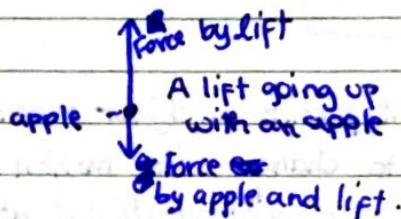 Force by lift
A lift going up
with an apple
apple
Force
by apple and lift.